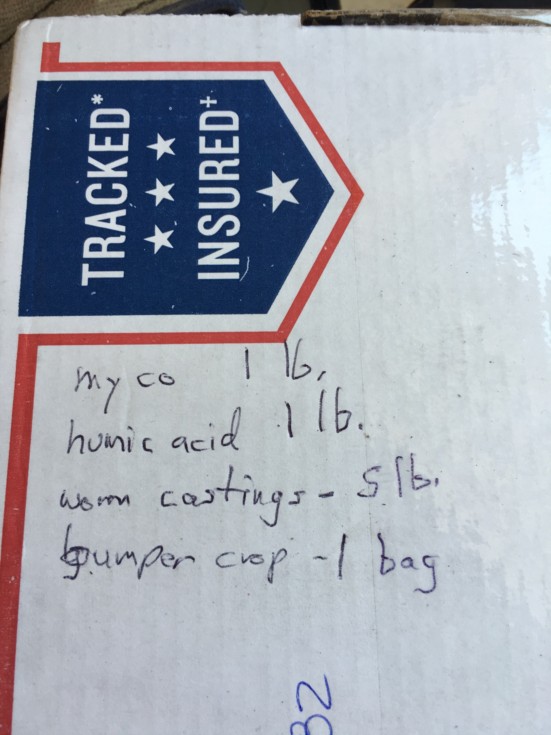 TRACKED*
INSURED+
my co 1 lb.
humic acid 1 lb.
worm castings - 5 lb.
bumper crop - 1 bag
32